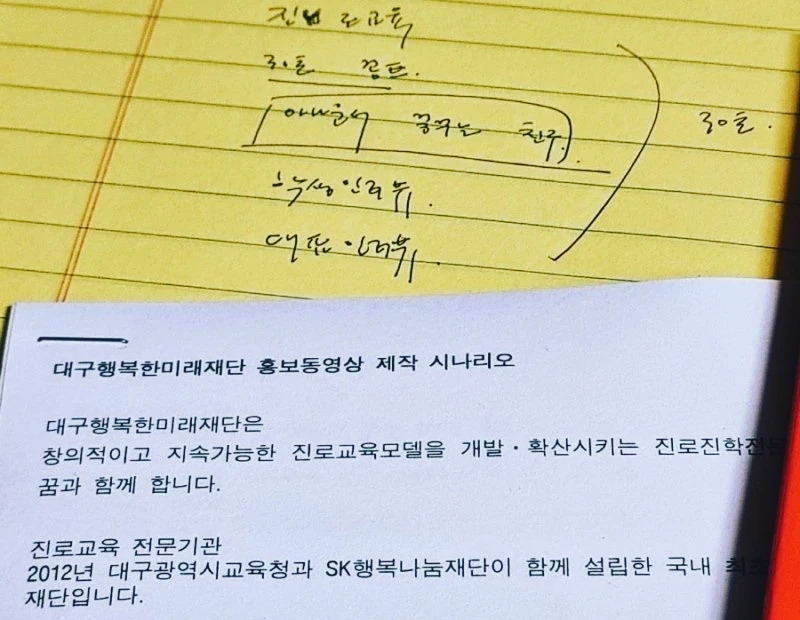 진로교육
30초
꿈꾸는
학생인터뷰.
대표 인터뷰.
30초.
대구행복한미래재단 홍보동영상 제작 시나리오
대구행복한미래재단은
창의적이고 지속가능한 진로교육모델을 개발·확산시키는 진로진학전문
꿈과 함께 합니다.
진로교육 전문기관
2012년 대구광역시교육청과 SK행복나눔재단이 함께 설립한 국내 최초
재단입니다.